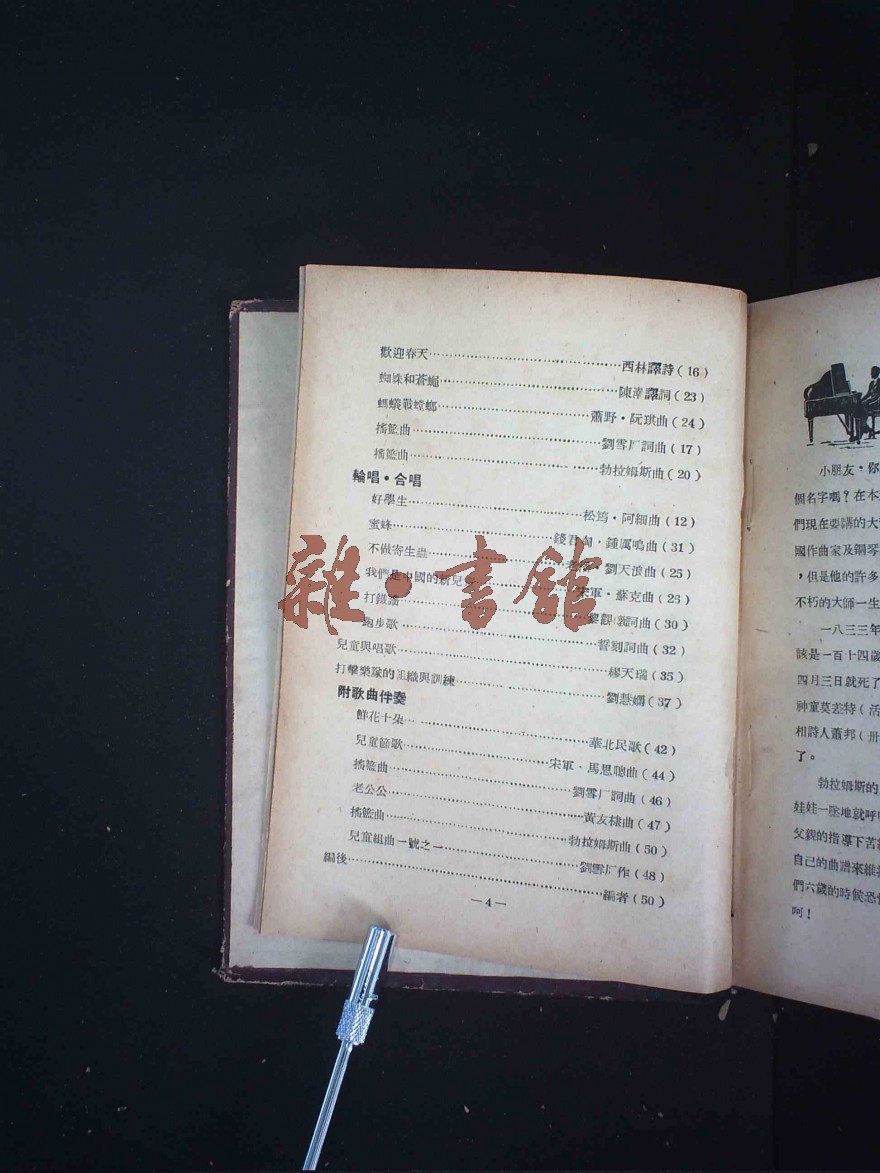 歡迎春天……西林譯詩(16)
蜘蛛和蒼蠅……陳滓譯詞(23)
螞蟻戰螳螂……蕭野·阮琪曲(24)
搖籃曲……劉雪厂詞曲(17)
搖籃曲……勃拉姆斯曲(20)
輪唱·合唱
好學生……松筠·阿細曲(12)
蜜蜂……錢君匋·鍾厲鳴曲(31)
不做寄生蟲……劉天浪曲(25)
我們是中國的新兒……宋軍·蘇克曲(26)
打鐵謠……詞曲(30)
跑步歌……詞曲(32)
兒童與唱歌……繆天瑞(35)
打擊樂隊的組織與訓練……劉慧嫻(37)
附歌曲伴奏
鮮花十朵……華北民歌(42)
兒童節歌……宋軍·馬思聰曲(44)
搖籃曲……劉雪厂詞曲(46)
老公公……黃友棣曲(47)
搖籃曲……勃拉姆斯曲(50)
兒童組曲一號之一……劉雪厂作(48)
編後……編者(50)
—4—
雜·書館
小朋友·你
個名字嗎?在本
們現在要講的大
國作曲家及鋼琴
,但是他的許多
不朽的大師一生
一八三三年
該是一百十四歲
四月三日就死了
神童莫差特(活
相詩人蕭邦(卅
了。
勃拉姆斯的
娃娃一墜地就呼
父親的指導下苦
自己的曲譜來維
們六歲的時候恐
呵!